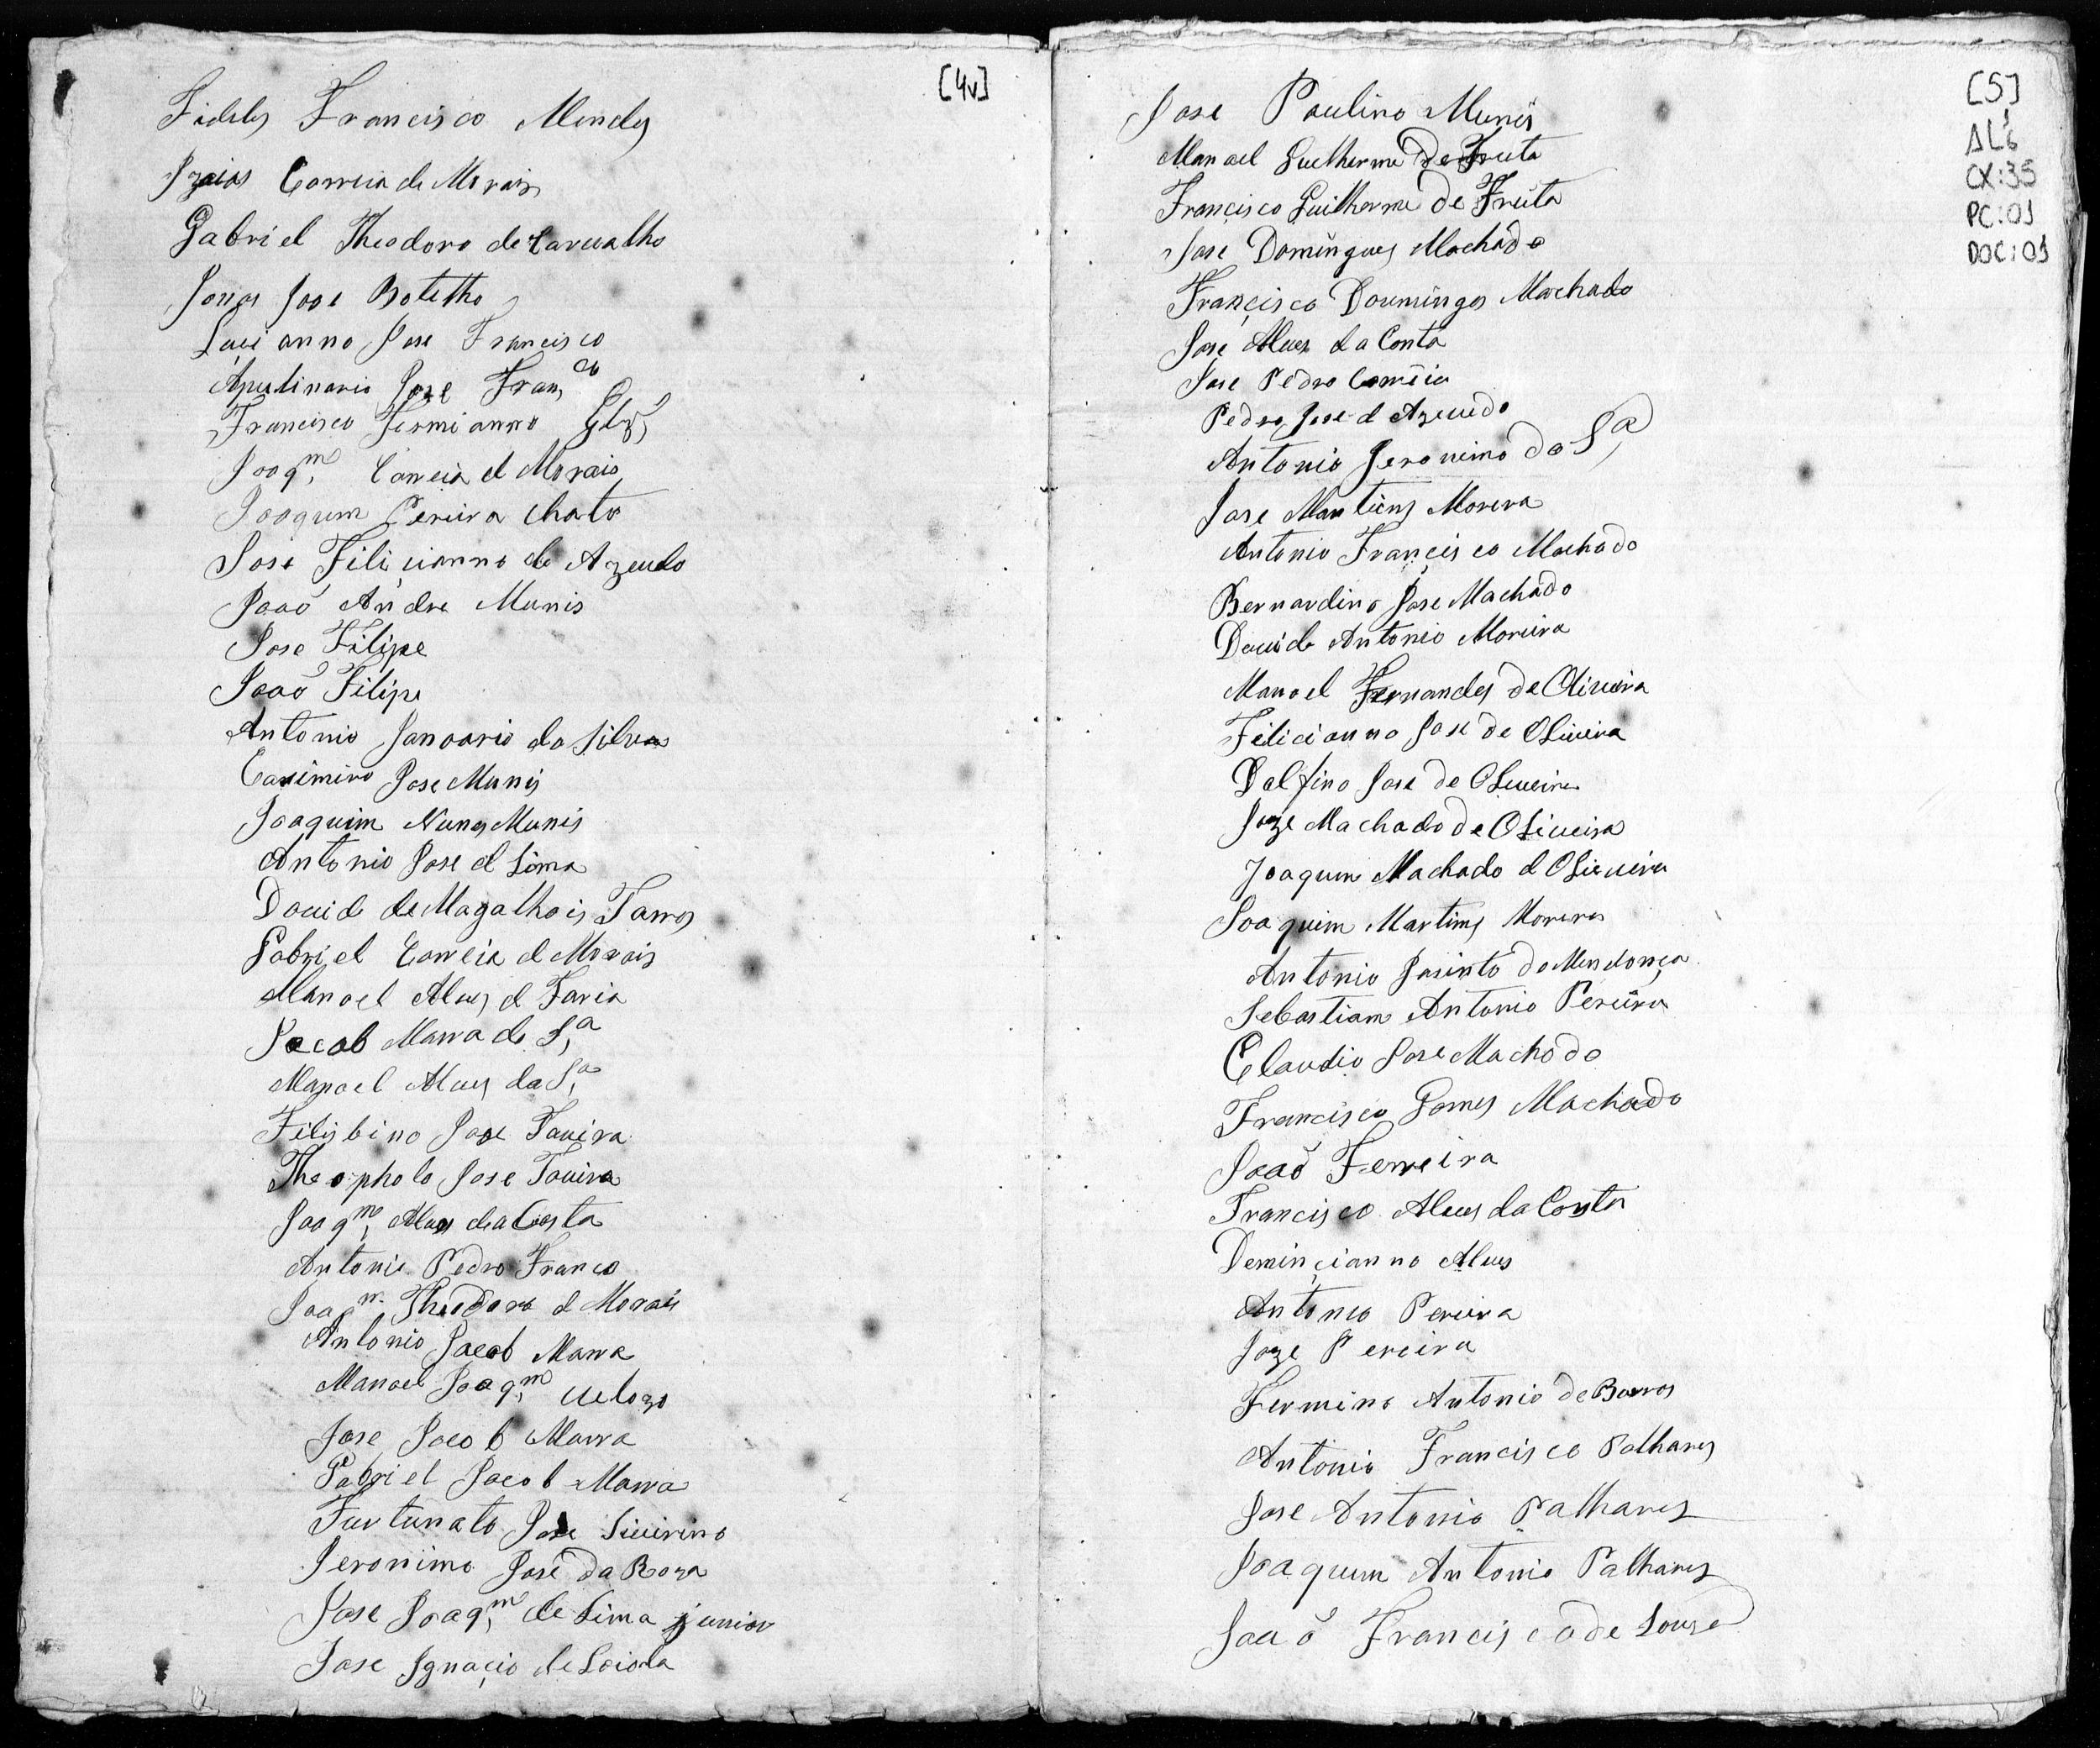 [4v]
Fidelis Francisco Mendes
Izaias Correia de Morais
Gabriel Theodoro de Carvalho
Jonas Jose Botelho
Luci anno Jose Francisco
Apulinario Joze Fran,co
Francisco Firmi anno Glz
Joaq,m Correia d Morais
Joaquim Pereira Chato
Jose Filicianno de Azeuedo
Joaõ Andre Munis
Jose Filipe
Joaõ Filipe
Antonio Janoario da Silva
Casimiro Jose Munis
Joaquim Nunes Munis
Antonio Jose d Lima
Dauid de Magalhais Tarros
Gabriel Correia d Morais
Manoel Alues d Faria
Jacob Marra de S,a
Manoel Alues da S,a
Filisbino Jose Taueira
Theopholo Jose Taueira
Joaq,m Alues da Costa
Antonio Pedro Franco
Joaq,m Theodoro d Morais
Antonio Jacob Marra
Manoel Joaq,m Uelozo
Jose Jacob Marra
Gabriel Jacob Marra
Furtunato Jose Siuirino
Jeronimo Jose da Roza
Jose Joaq,m de Lima junior
Jose Ignaçio de Loiola
[5]
AL6
CX:35
PC:01
DOC:01
Jose Paulino Munis
Manoel Guelherme De Fruta
Francisco Guilherme de Fruta
Jose Domingues Machado
Françisco Doumingos Machado
Jose Alues da Conta
Jose Pedro Correia
Pedro Jose d Azeuedo
Antonio Jeronimo da S,a
Jose Martins Morera
Antonio Françisco Machado
Bernardino Jose Machado
Dauid Antonio Moreira
Manoel Fernandes de Oliueira
Filicianno Jose de Oliueira
Delfino Jose de Oliueira
Joze Machado de Oliueira
Joaquim Machado d Oliueira
Joaquim Martins Morera
Antonio Jasinto de Mendonça
Sebastiam Antonio Pereira
Claudio Jose Machado
Francisco Gomes Machado
Joaõ Ferreira
Francisco Alues da Costa
Deminçianno Alues
Antonio Pereira
Joze Pereira
Fermino Antonio de Barros
Antonio Francisco Palhares
Jose Antonio Palhares
Joaquim Antonio Palhares
Joaõ Francisco de Souza